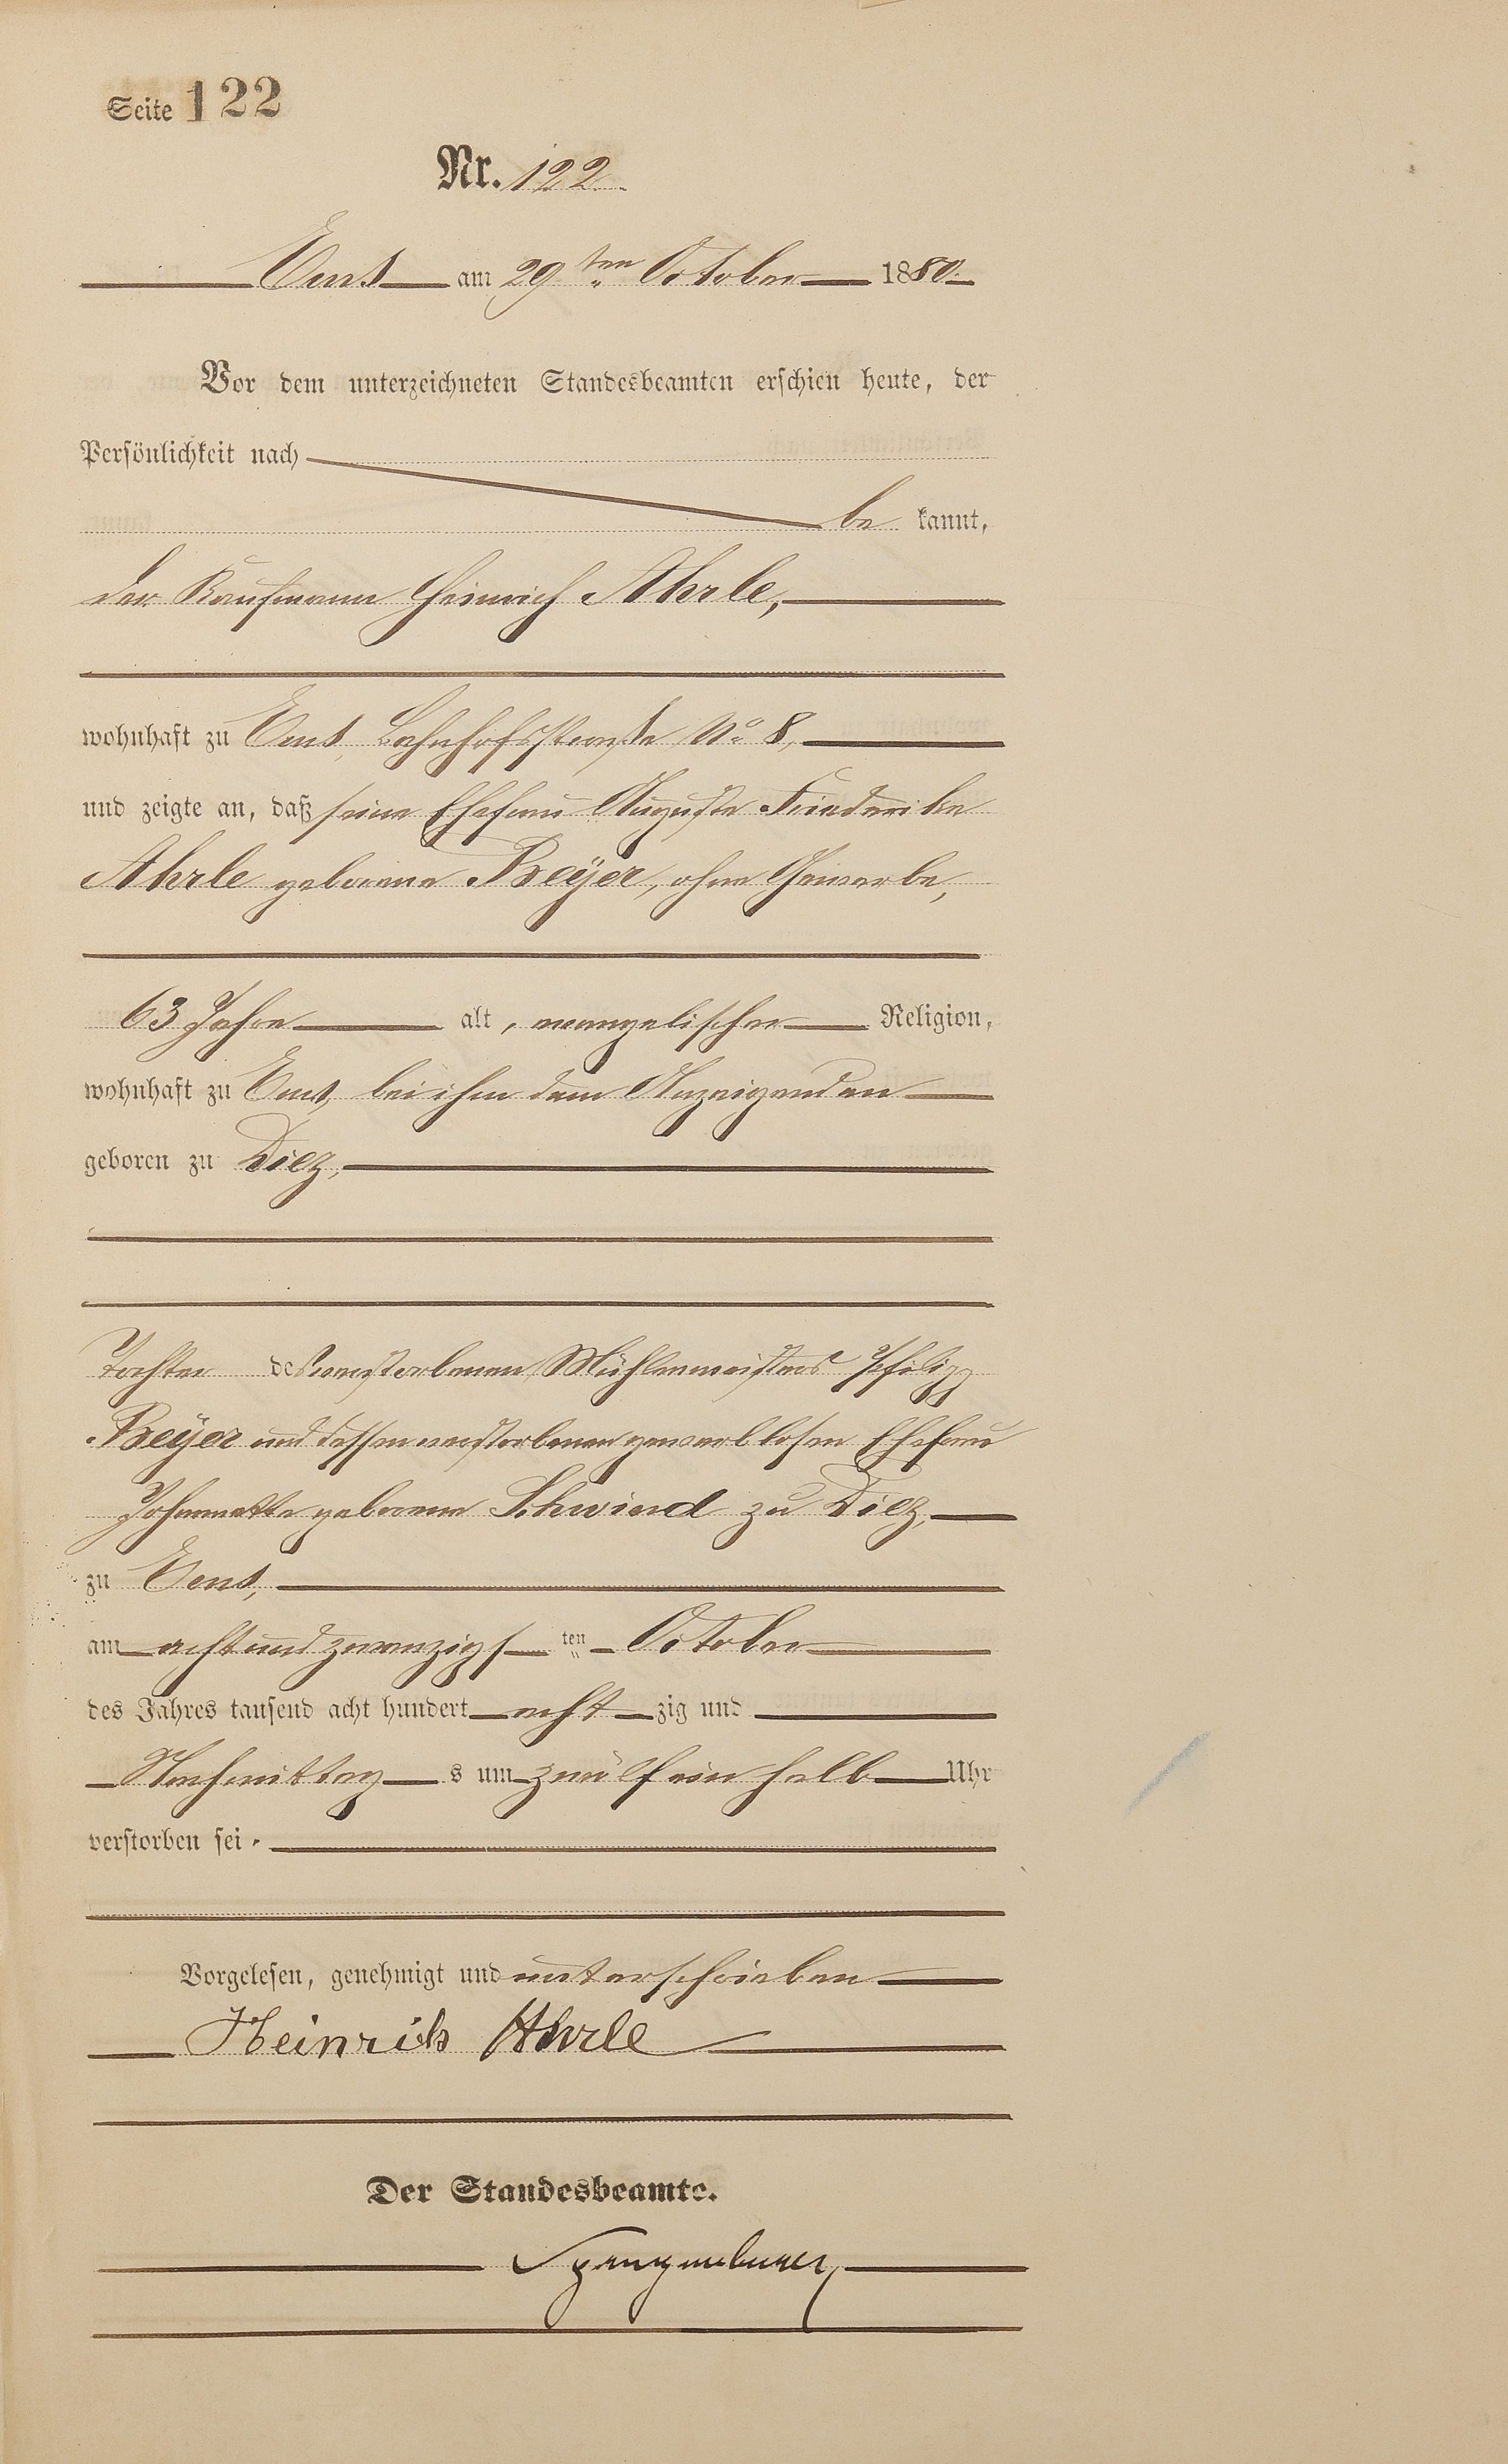 Seite 122
Nr. 122.
Ems am 29ten October 1880.
Vor dem unterzeichneten Standesbeamten erschien heute, der
Persönlichkeit nach
be kannt,
der Kaufmann Heinrich Ahrle,
wohnhaft zu Ems, Bahnhofsstraße No 8,
und zeigte an, daß seine Ehefrau Auguste Friederike
Ahrle geborene Beÿer, ohne Gewerbe,
63 Jahre alt, evangelischer Religion,
wohnhaft zu Ems, bei ihm dem Anzeigenden
geboren zu Diez,
Tochter des verstorbenen Mühlenmeisters Philipp
Beÿer und dessen verstorbenen gewerblosen Ehefrau
Johannette geborene Schwind zu Diez,
zu Ems,
am achtundzwanzigsten October
des Jahres tausend acht hundert acht zig und
Nachmittag s um zwölf ein halb Uhr
verstorben sei.
Vorgelesen, genehmigt und unterschrieben
Heinrich Ahrle
Der Standesbeamte.